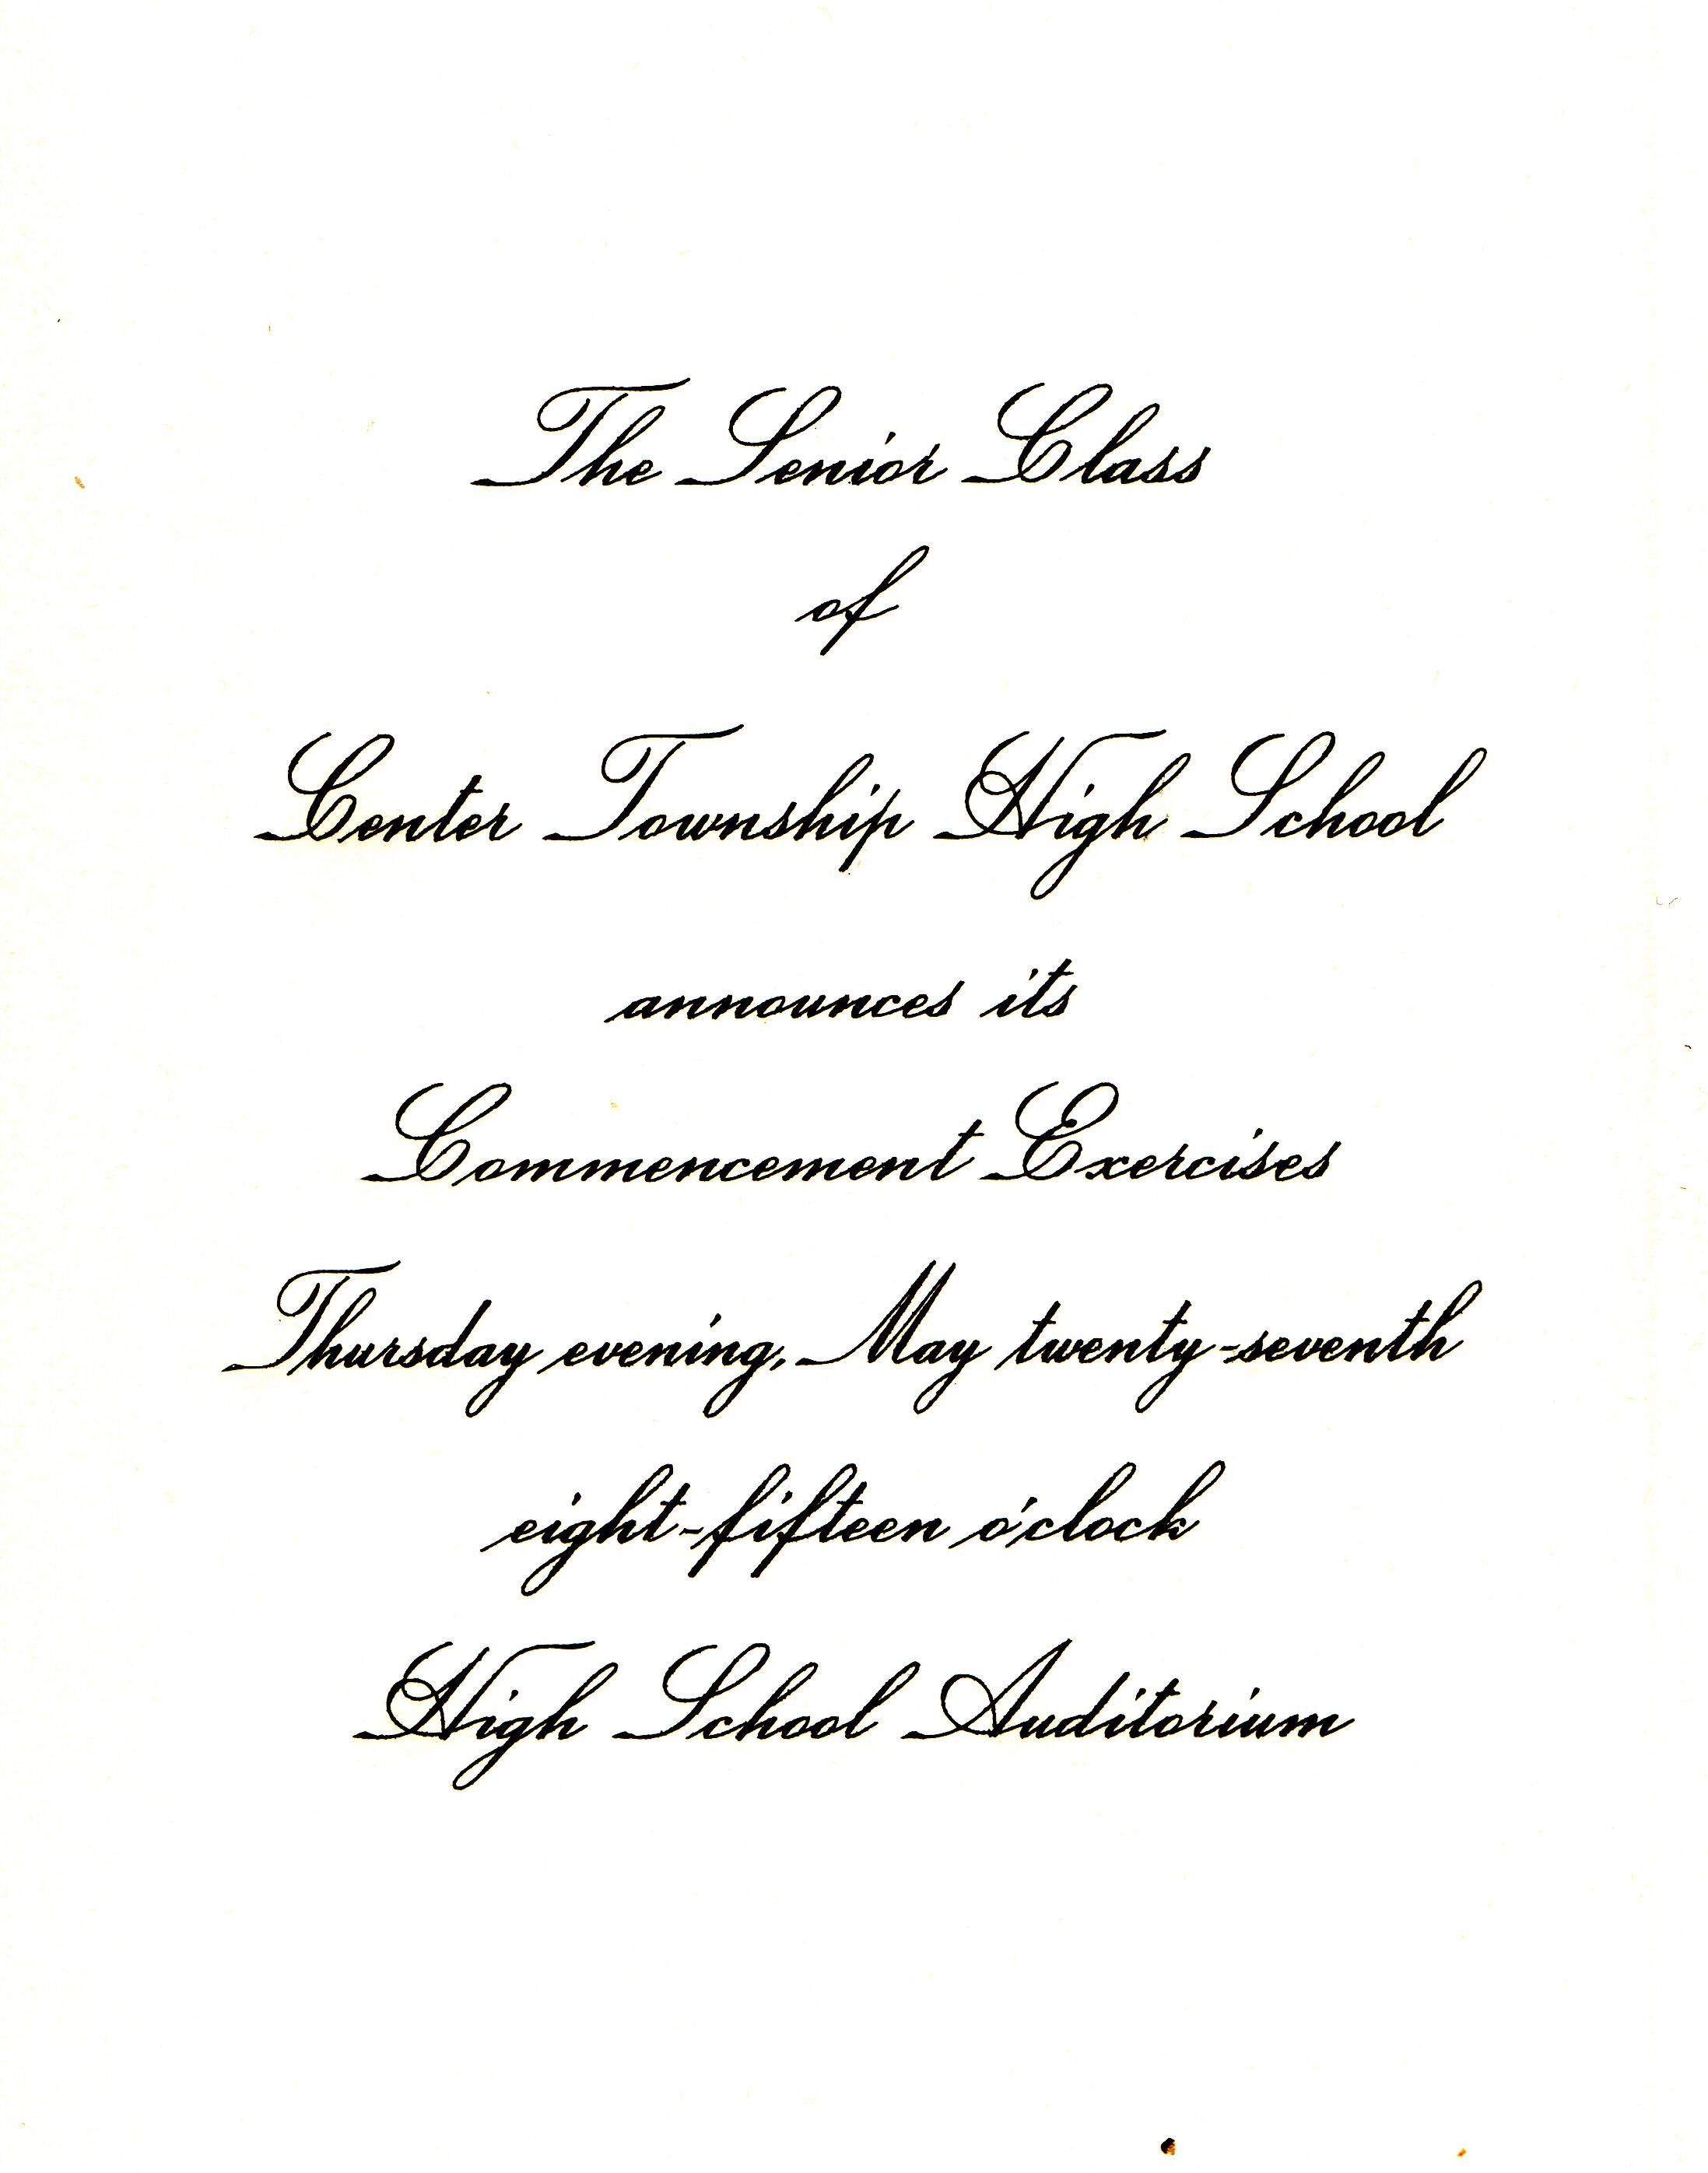 The Senior Class
of
Center Township High School
announces its
Commencement Exercises
Thursday evening, May twenty-seventh
eight-fifteen o'clock
High School Auditorium